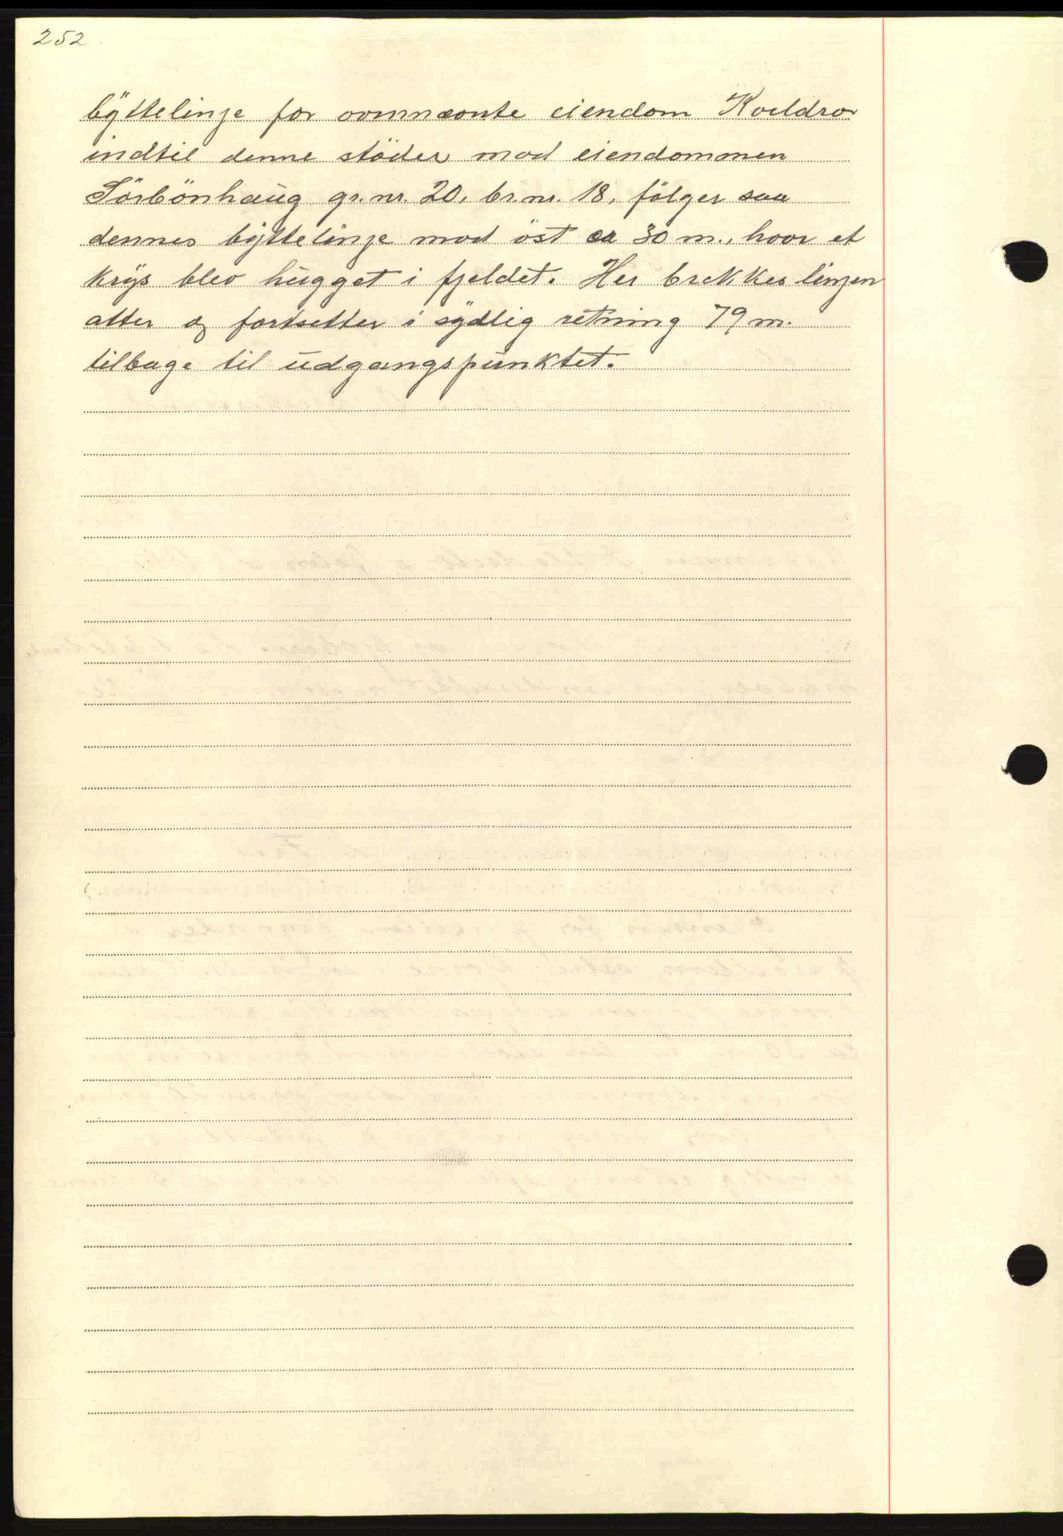 252.
byttelinje for ovennævnte eiendom Kveldro
indtil denne støder mod eiendommen
Sörbönhaug gr. nr. 20, br. nr. 18, fölger saa
dennes byttelinje mod öst ca 30 m., hvor et
krys blev hugget i fjeldet. Her brekkes linjen
atter og fortsetter i sydlig retning 79 m.
tilbage til udgangspunktet.